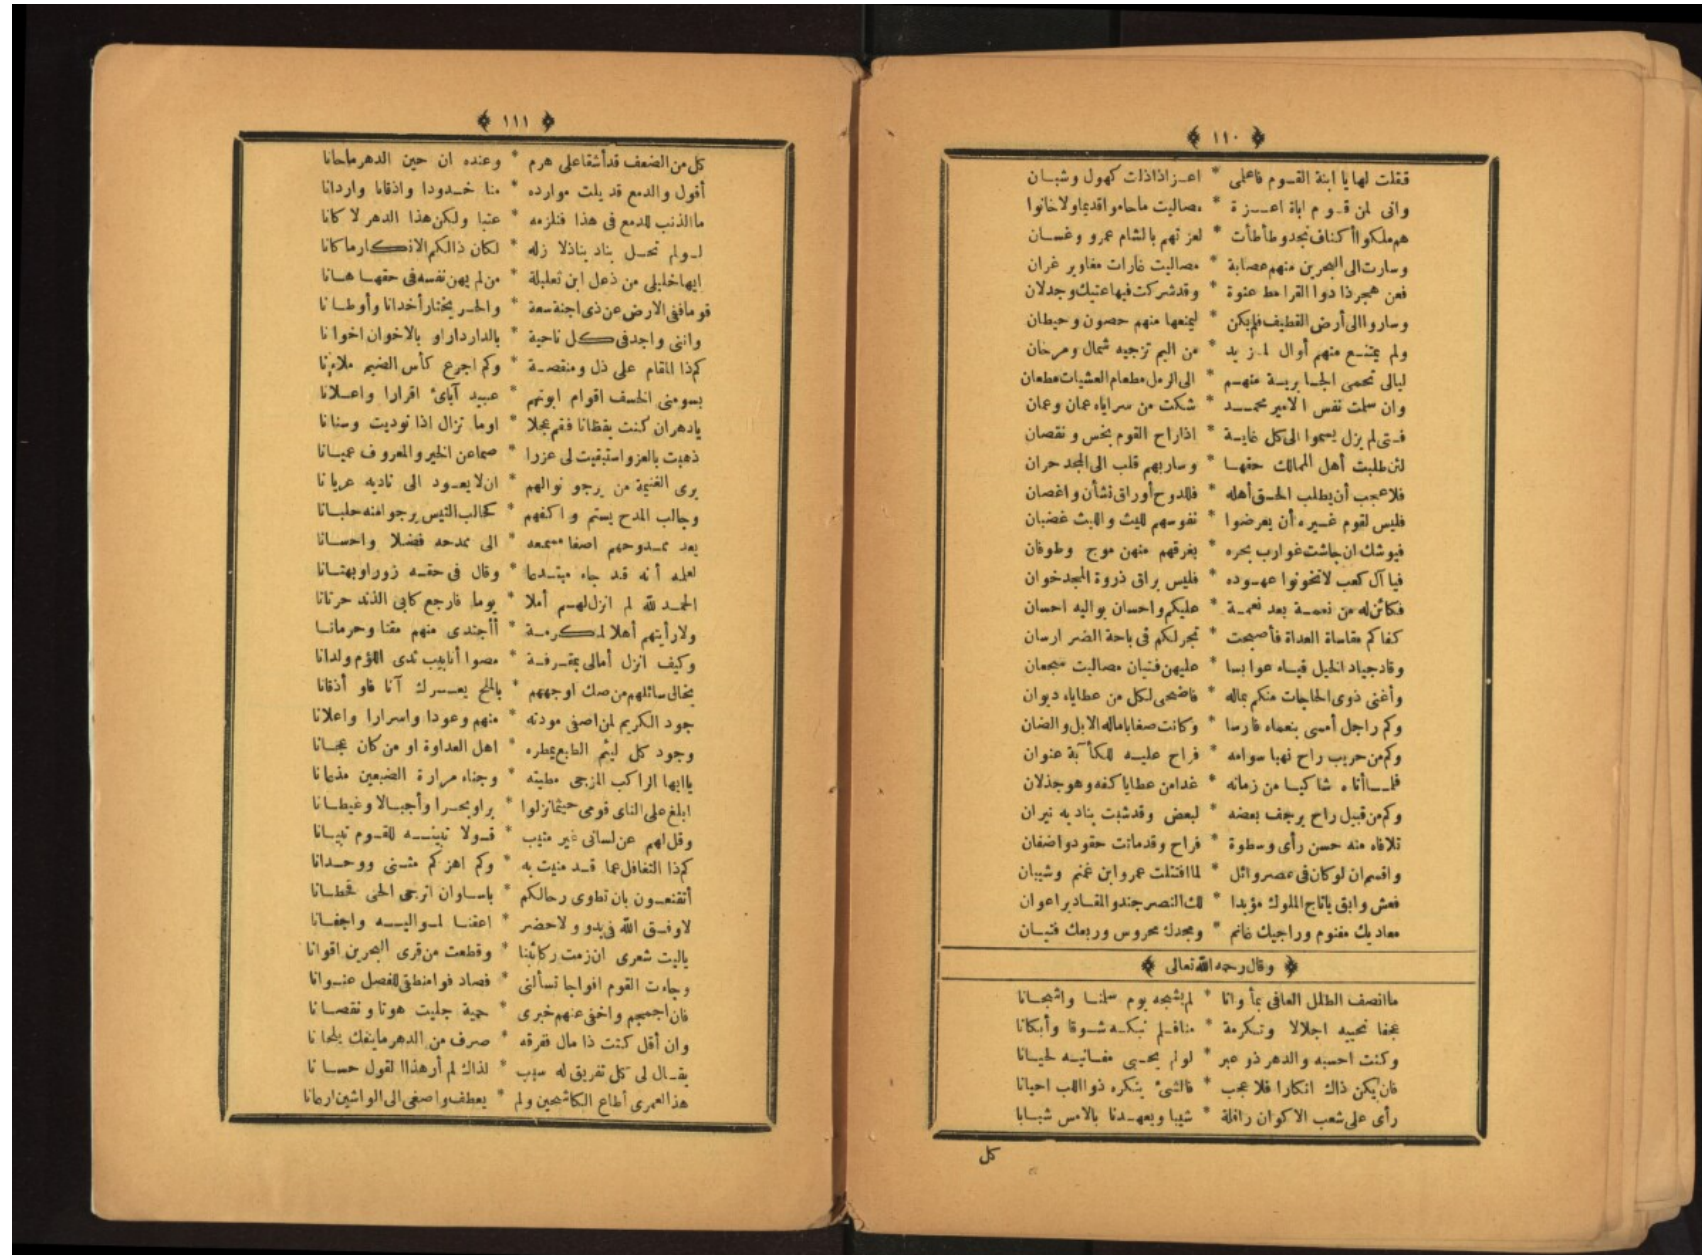 ١١٠
فقلت لها يا ابنة القوم فاعلمى * اعز اذا ذلت كهول وشبان
وانى لمن قوم اباة اعزة * مصاليت ماحاموا قديما ولا خانوا
هم ملكوا أكناف نجد وطأطأت * لعزتهم بالشام عمرو وغسان
وسارت الى البحرين منهم عصابة * مصاليت غارات مغاوير غران
فعن هجر ذادوا القرامط عنوة * وقد شركت فيها عتيك وجدلان
وساروا الى أرض القطيف فلم يكن * ليمنعها منهم حصون وحيطان
ولم يمتنع منهم أوال لمزبد * من اليم تزجيه شمال ومرخان
ليالى تحمى الجابرية منهم * الى الرمل مطعام العشيات مطعان
وان سلمت نفس الامير محمد * شكت من سراياه عمان وعمان
فتى لم يزل يسموا الى كل غاية * اذا راح القوم بخس ونقصان
لئن طلبت أهل الممالك حقها * وسار بهم قلب الى المجد حران
فلا عجب أن يطلب الحق أهله * فللدوح أوراق نشأن واغصان
فليس لقوم غيره أن يعرضوا * نفوسهم لليث والليث غضبان
فيوشك ان جاشت غوارب بحره * يغرقهم منهن موج وطوفان
فيا آل كعب لا تخونوا عهوده * فليس براق ذروة المجد خوان
فكائن له من نعمة بعد نعمة * عليكم واحسان يواليه احسان
كفاكم مقاساة العداة فأصبحت * تجر لكم فى باحة الضر ارسان
وقاد جياد الخيل قباء عوابسا * عليهن فتيان مصاليت شجعان
وأغنى ذوى الحاجات منكم بماله * فاضحى لكل من عطاياه ديوان
وكم راجل أمسى بنعماه فارسا * وكانت صفايا ماله الابل والضان
وكم من حريب راح نهبا سوامه * فراح عليه للكآبة عنوان
فلما أتاه شاكيا من زمانه * غدا من عطايا كفه وهو جذلان
وكم من قبيل راح يرجف بعضه * لبعض وقد شبت بناديه نيران
تلافاه منه حسن رأى وسطوة * فراح وقد ماتت حقود واضغان
واقسم ان لو كان فى عصر وائل * لما اقتتلت عمرو ابن غنم وشيبان
فعش وابق ياتاج الملوك مؤيدا * لك النصر جند والمقادير اعوان
معاديك مغنوم وراجيك غانم * ومجدك محروس وربعك فتيان
وقال رحمه الله تعالى
ما انصف الطلل العافى بمأوانا * لم يشجه يوم سلنا واشجانا
عجنا نحييه اجلالا وتكرمة * منا فلم نبكه شوقا وأبكانا
وكنت احسبه والدهر ذو عبر * لو لم يحيى مغانيه لحيانا
فان يكن ذاك انكارا فلا عجب * فالشئ ينكره ذو اللب احيانا
رأى على شعب الاكوان رافلة * شيبا ويعهدنا بالامس شبابا
كل
١١١
كل من الضعف قد أشقا على هرم * وعنده ان حين الدهر ما حانا
أقول والدمع قد بلت موارده * منا خدودا واذقانا واردانا
ما الذنب للدمع فى هذا فنلزمه * عتبا ولكن هذا الدهر لا كانا
لولم تحل بناد بناذلا زله * لكان ذالكم الانكار ما كانا
ايها خليلى من ذهل ابن ثعلبلة * من لم يهن نفسه فى حقها هانا
قوما ففى الارض عن ذى اجنة سعة * والحر يختار أخدانا وأوطانا
واننى واجد فى كل ناحية * بالدار دارا و بالاخوان اخوانا
كم ذا المقام على ذل ومنقصة * وكم اجرع كأس الضيم ملاءنا
يسومنى الخسف اقوام ابونهم * عبيد آبائ اقرارا واعلانا
يادهر ان كنت يقظانا فقم عجلا * اوما تزال اذا نوديت وسنانا
ذهبت بالعز واستبقيت لى عزرا * صماعن الخير والمعروف عميانا
يرى الغنيمة من يرجو نوالهم * ان لا يعود الى ناديه عريانا
وجالب المدح يستم و اكفهم * كجالب التيس يرجو امنه حلبانا
يعد ممدوحهم اصغا مسمعه * الى ممدحه فضلا واحسانا
لعلمه أنه قد جاء مبتدعا * وقال فى حقه زورا وبهتانا
الحمد لله لم انزل لهم أملا * يوما فارجع كابى الذند حرنانا
ولا رأيتهم أهلا لمكرمة * أأجتدى منهم مقتا وحرمانا
وكيف انزل أمالى بمقرفة * مصوا أنابيب ثدى اللؤم ولدانا
يخالى سائلهم من صك اوجههم * بالملح يعرك آنا فاو أذقانا
جود الكريم لمن اصفى مودته * منهم وعودا واسرارا واعلانا
وجود كل لئيم الطبع يمطره * اهل العداوة او من كان عجانا
يا ايها الراكب المزجى مطيته * وجناء مرارة الضبعين مذعانا
ابلغ على الناى قومى حيثما نزلوا * برا وبحرا وأجبالا وغيطانا
وقل لهم عن لسانى غير متئب * قولا تبينه للقوم تبيانا
كم ذا التغافل عما قد منيت به * وكم اهزكم مثنى ووحدانا
أتقنعون بان تطوى رحالكم * باساوان ازجى الحى قحطانا
لا وفق الله فى بدو ولا حضر * اعقنا لمواليه واجفانا
ياليت شعرى ان زمت ركائبنا * وقطعت من قرى البحرين اقوانا
وجاءت القوم افواجا تسألنى * فصاد فوا منطقى للفصل عنوانا
فان اجمجم واخفى عنهم خبرى * حمية جليت هونا ونقصانا
وان أقل كنت ذا مال ففرقه * صرف من الدهر ماينفك يلحانا
يقال لى كل تفريق له سبب * لذاك لم أر هذا القول حسانا
هذا لعمرى أطاع الكاشحين ولم * يعطف واصغى الى الواشين ارمانا